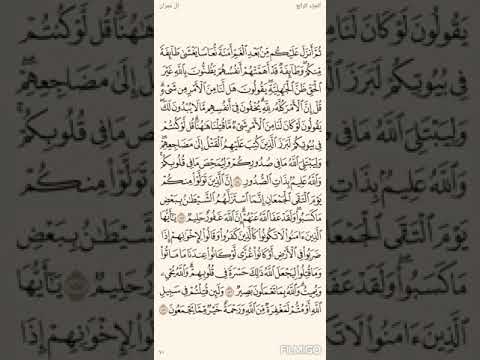 الجزء الرابع
آل عمران
ثُمَّ أَنزَلَ عَلَيْكُم مِّنۢ بَعْدِ ٱلْغَمِّ أَمَنَةً نُّعَاسًا يَغْشَىٰ طَآئِفَةً
مِّنكُمْ وَطَآئِفَةٌ قَدْ أَهَمَّتْهُمْ أَنفُسُهُمْ يَظُنُّونَ بِٱللَّهِ غَيْرَ
ٱلْحَقِّ ظَنَّ ٱلْجَٰهِلِيَّةِ يَقُولُونَ هَل لَّنَا مِنَ ٱلْأَمْرِ مِن شَىْءٍ
قُلْ إِنَّ ٱلْأَمْرَ كُلَّهُۥ لِلَّهِ يُخْفُونَ فِىٓ أَنفُسِهِم مَّا لَا يُبْدُونَ لَكَ
يَقُولُونَ لَوْ كَانَ لَنَا مِنَ ٱلْأَمْرِ شَىْءٌ مَّا قُتِلْنَا هَٰهُنَا قُل لَّوْ كُنتُمْ
فِى بُيُوتِكُمْ لَبَرَزَ ٱلَّذِينَ كُتِبَ عَلَيْهِمُ ٱلْقَتْلُ إِلَىٰ مَضَاجِعِهِمْ
وَلِيَبْتَلِىَ ٱللَّهُ مَا فِى صُدُورِكُمْ وَلِيُمَحِّصَ مَا فِى قُلُوبِكُمْ
وَٱللَّهُ عَلِيمٌۢ بِذَاتِ ٱلصُّدُورِ ١٥٤ إِنَّ ٱلَّذِينَ تَوَلَّوْا۟ مِنكُمْ
يَوْمَ ٱلْتَقَى ٱلْجَمْعَانِ إِنَّمَا ٱسْتَزَلَّهُمُ ٱلشَّيْطَٰنُ بِبَعْضِ
مَا كَسَبُوا۟ وَلَقَدْ عَفَا ٱللَّهُ عَنْهُمْ إِنَّ ٱللَّهَ غَفُورٌ حَلِيمٌ ١٥٥ يَٰٓأَيُّهَا
ٱلَّذِينَ ءَامَنُوا۟ لَا تَكُونُوا۟ كَٱلَّذِينَ كَفَرُوا۟ وَقَالُوا۟ لِإِخْوَٰنِهِمْ إِذَا
ضَرَبُوا۟ فِى ٱلْأَرْضِ أَوْ كَانُوا۟ غُزًّى لَّوْ كَانُوا۟ عِندَنَا مَا مَاتُوا۟
وَمَا قُتِلُوا۟ لِيَجْعَلَ ٱللَّهُ ذَٰلِكَ حَسْرَةً فِى قُلُوبِهِمْ وَٱللَّهُ يُحْىِۦ
وَيُمِيتُ وَٱللَّهُ بِمَا تَعْمَلُونَ بَصِيرٌ ١٥٦ وَلَئِن قُتِلْتُمْ فِى سَبِيلِ
ٱللَّهِ أَوْ مُتُّمْ لَمَغْفِرَةٌ مِّنَ ٱللَّهِ وَرَحْمَةٌ خَيْرٌ مِّمَّا يَجْمَعُونَ ١٥٧
٧٠
FILM.GO